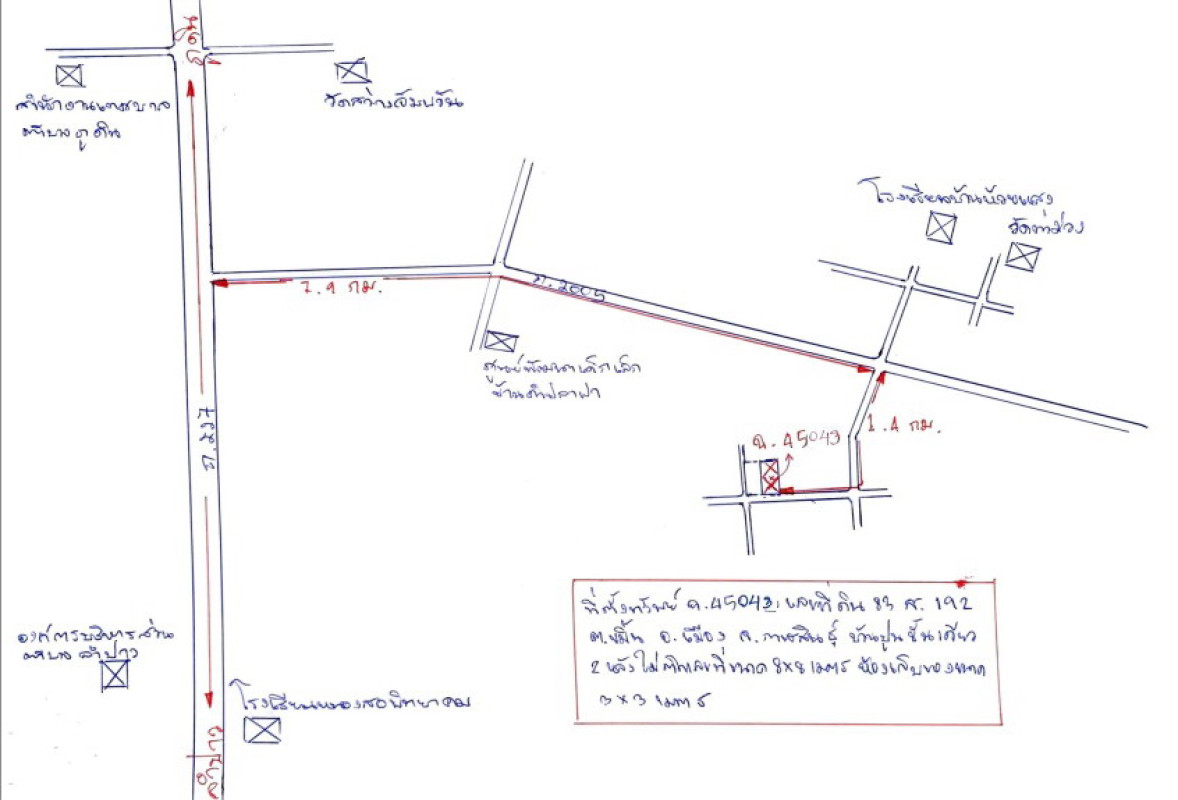 ภูดิน
สำนักงานเทศบาล
ตำบลภูดิน
วัดสว่างอัมพวัน
โรงเรียนบ้านห้วยแสง
วัดท่าม่วง
7.9 กม.
ถ.2005
ศูนย์พัฒนาเด็กเล็ก
บ้านคำปลาฝา
1.4 กม.
ฉ.45043
องค์การบริหารส่วน
ตำบลลำปาว
โรงเรียนหนองสอพิทยาคม
ลำปาว
ที่ตั้งทรัพย์ ฉ.45043 เลขที่ดิน 83 ส.192
ต.ขมิ้น อ.เมือง จ.กาฬสินธุ์ บ้านปูนชั้นเดียว
2 หลังไม่ติดเลขที่ขนาด 8×8 เมตร ห้องเก็บของขนาด
3×3 เมตร